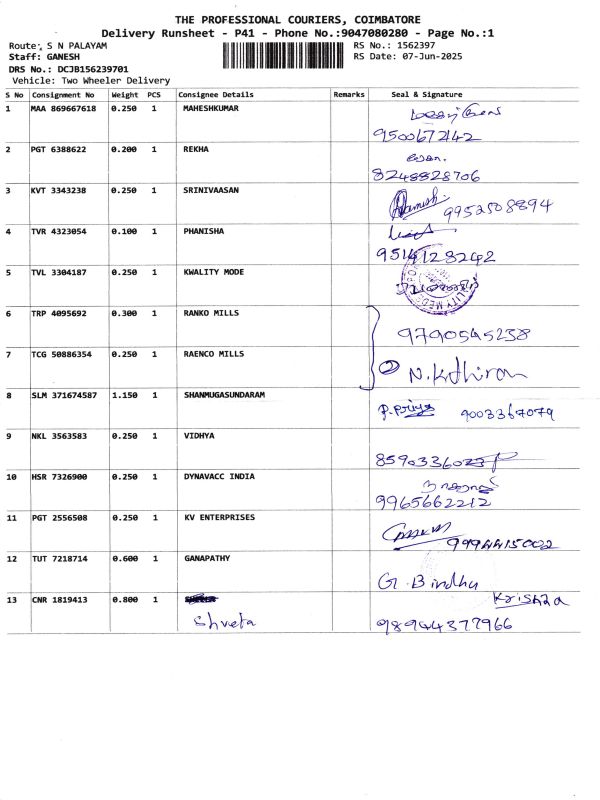 THE PROFESSIONAL COURIERS, COIMBATORE
Delivery Runsheet - P41 - Phone No.:9047080280 - Page No.:1
Route:, S N PALAYAM RS No.: 1562397
Staff: GANESH RS Date: 07-Jun-2025
DRS No.: DCJB156239701
Vehicle: Two Wheeler Delivery
S No Consignment No Weight PCS Consignee Details Remarks Seal & Signature
1 MAA 869667618 0.250 1 MAHESHKUMAR
9500672142
2 PGT 6388622 0.200 1 REKHA
8248828706
3 KVT 3343238 0.250 1 SRINIVAASAN
9952508894
4 TVR 4323054 0.100 1 PHANISHA
9514128242
5 TVL 3304187 0.250 1 KWALITY MODE
6 TRP 4095692 0.300 1 RANKO MILLS
9790545238
7 TCG 50886354 0.250 1 RAENCO MILLS
② N.Kathiran
8 SLM 371674587 1.150 1 SHANMUGASUNDARAM
P.Priya 9003367079
9 NKL 3563583 0.250 1 VIDHYA
8590336023
10 HSR 7326900 0.250 1 DYNAVACC INDIA
9965662212
11 PGT 2556508 0.250 1 KV ENTERPRISES
9994415002
12 TUT 7218714 0.600 1 GANAPATHY
G. Bindhu
13 CNR 1819413 0.800 1 Krishna
Shveta 98944377966